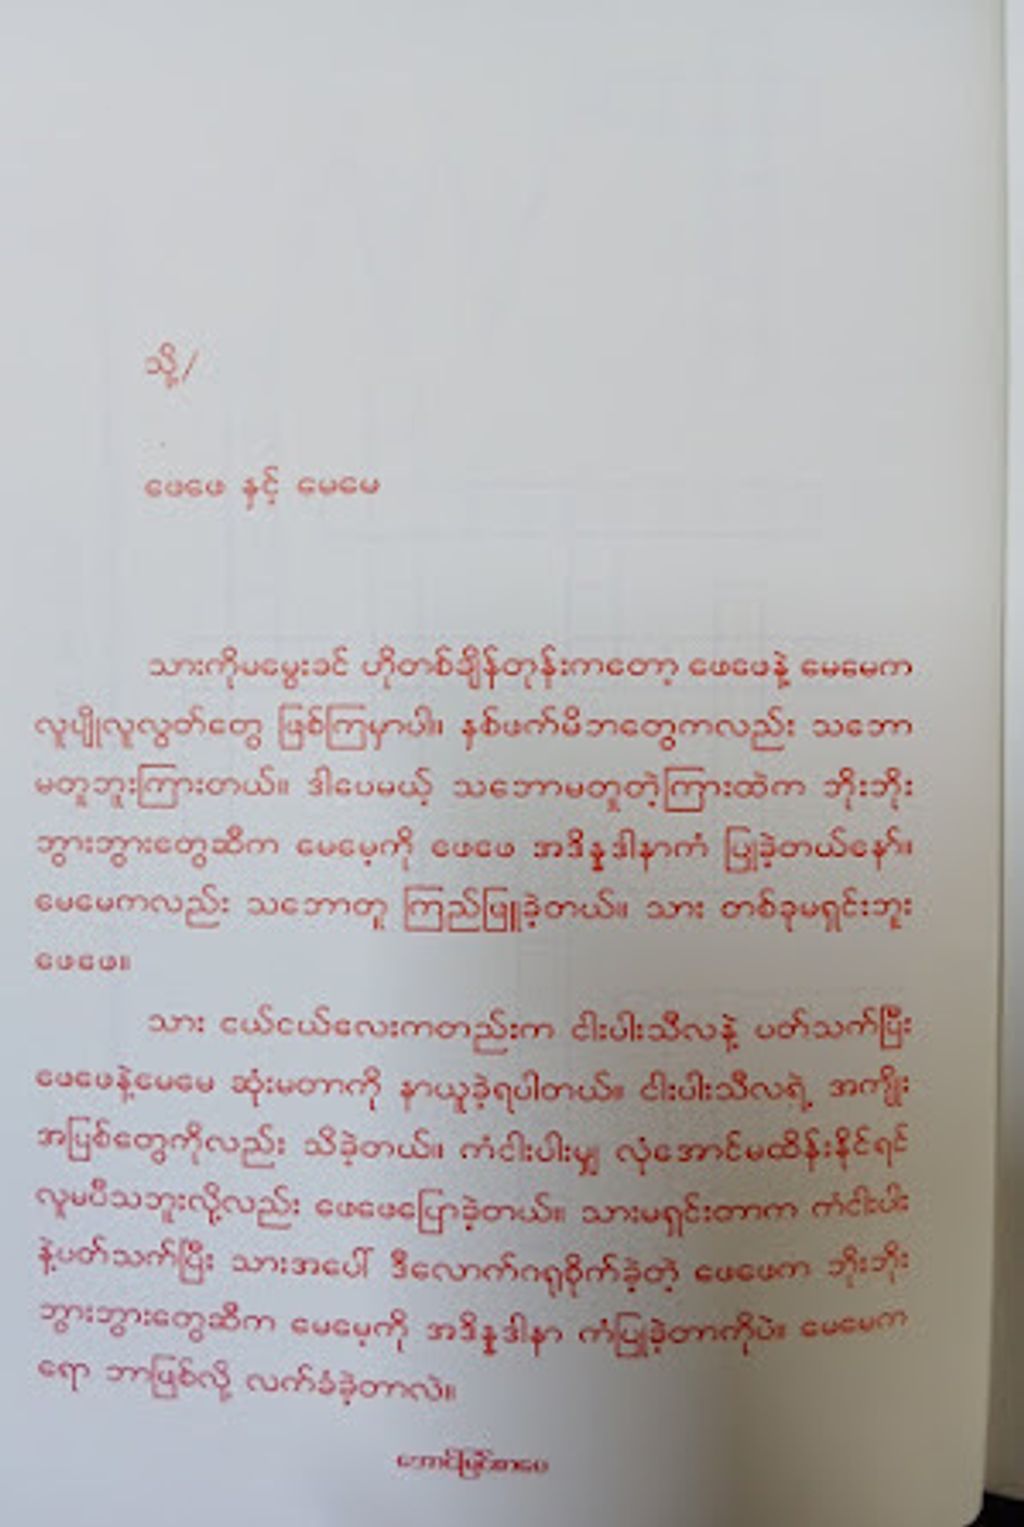 သို့/
ဖေဖေ နှင့် မေမေ
သားကိုမမွေးခင် ဟိုတစ်ချိန်တုန်းကတော့ ဖေဖေနဲ့ မေမေက
လူပျိုလူလွတ်တွေ ဖြစ်ကြမှာပါ။ နှစ်ဖက်မိဘတွေကလည်း သဘော
မတူဘူးကြားတယ်။ ဒါပေမယ့် သဘောမတူတဲ့ကြားထဲက ဘိုးဘိုး
ဘွားဘွားတွေဆီက မေမေ့ကို ဖေဖေ အဒိန္နဒါနာကံ ပြုခဲ့တယ်နော်။
မေမေကလည်း သဘောတူ ကြည်ဖြူခဲ့တယ်။ သား တစ်ခုမရှင်းဘူး
ဖေဖေ။
သား ငယ်ငယ်လေးကတည်းက ငါးပါးသီလနဲ့ ပတ်သက်ပြီး
ဖေဖေနဲ့မေမေ ဆုံးမတာကို နာယူခဲ့ရပါတယ်။ ငါးပါးသီလရဲ့ အကျိုး
အပြစ်တွေကိုလည်း သိခဲ့တယ်။ ကံငါးပါးမျှ လုံအောင်မထိန်းနိုင်ရင်
လူမပီသဘူးလို့လည်း ဖေဖေပြောခဲ့တယ်။ သားမရှင်းတာက ကံငါးပါး
နဲ့ပတ်သက်ပြီး သားအပေါ် ဒီလောက်ဂရုစိုက်ခဲ့တဲ့ ဖေဖေက ဘိုးဘိုး
ဘွားဘွားတွေဆီက မေမေ့ကို အဒိန္နဒါနာ ကံပြုခဲ့တာကိုပဲ။ မေမေက
ရော ဘာဖြစ်လို့ လက်ခံခဲ့တာလဲ။
အောင်မြင်စာပေ